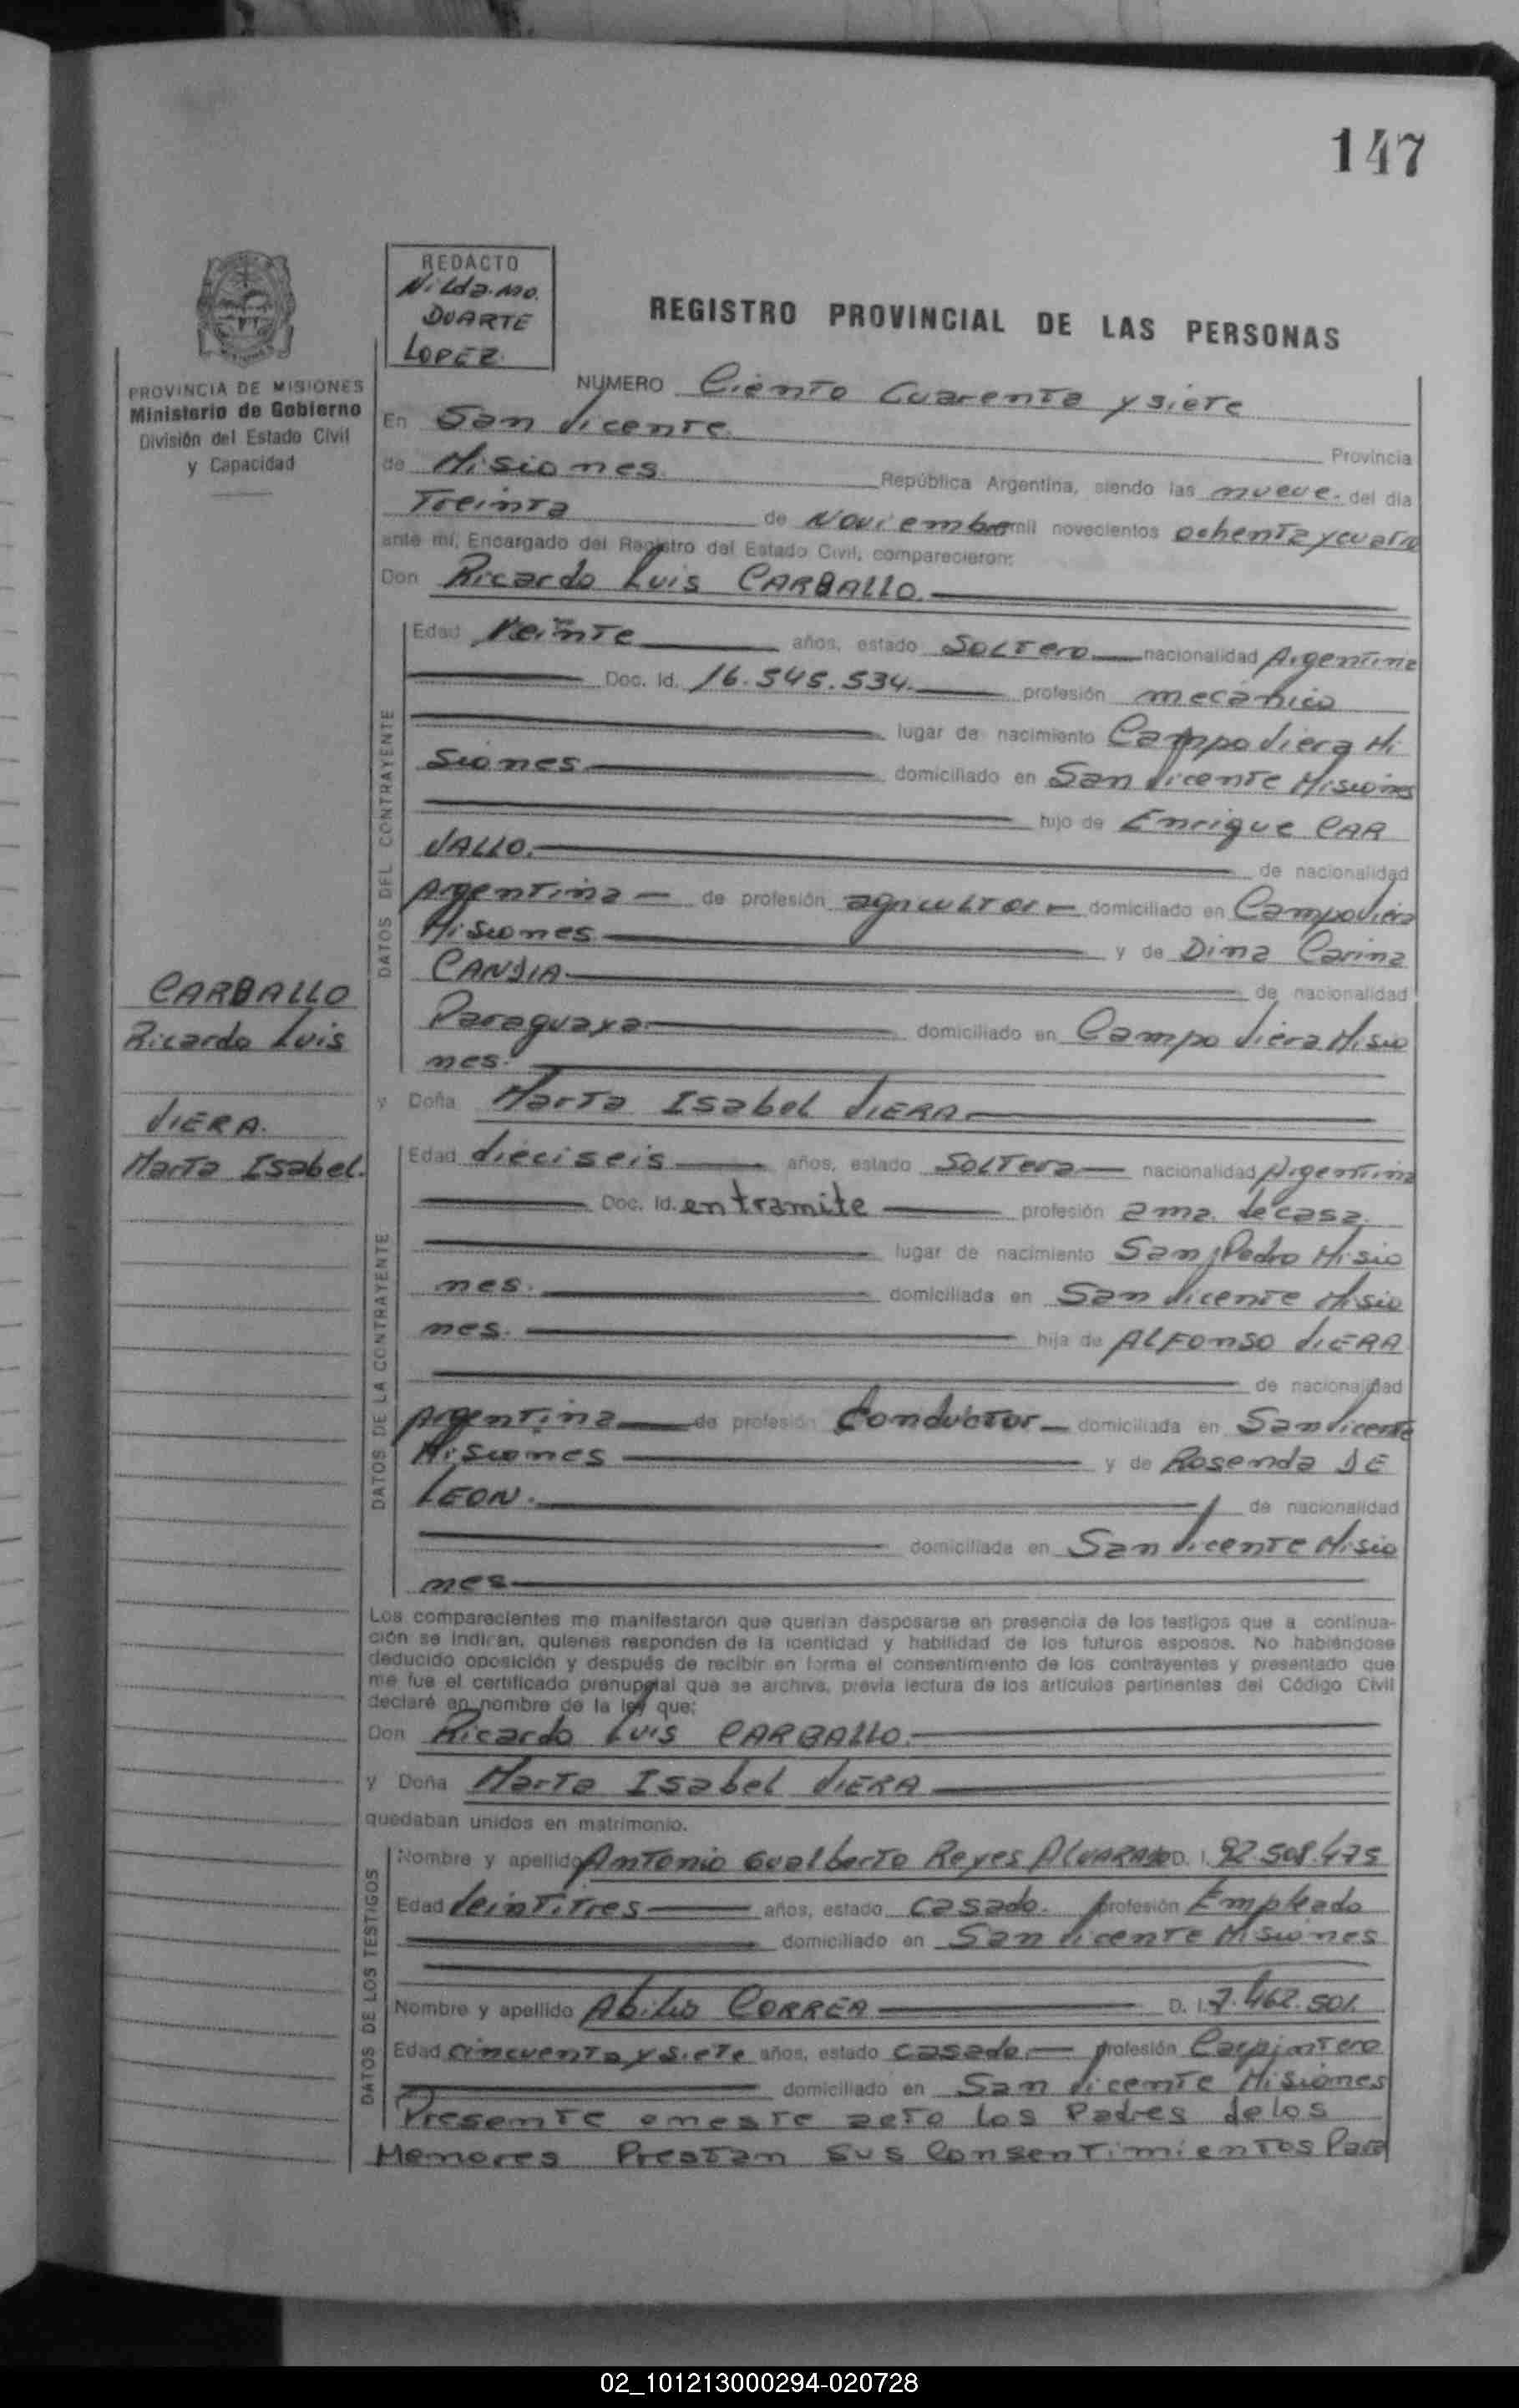 147
REDACTO
Nilda.Mo.
DUARTE
LOPEZ.
REGISTRO PROVINCIAL DE LAS PERSONAS
PROVINCIA DE MISIONES
Ministerio de Gobierno
División del Estado Civil
y Capacidad
NUMERO Ciento Cuarenta y siete
En San Vicente Provincia
de Misiones República Argentina, siendo las nueve. del día
Treinta de Noviembre mil novecientos ochenta y cuatro
ante mí, Encargado del Registro del Estado Civil, comparecieron:
Don Ricardo Luis CARBALLO.
DATOS DEL CONTRAYENTE
Edad Veinte años, estado Soltero nacionalidad Argentina
Doc. Id. 16.545.534. profesión mecánico
lugar de nacimiento Campo Viera Mi
siones domiciliado en San Vicente Misiones
hijo de Enrique CAR
VALLO. de nacionalidad
Argentina de profesión agricultor domiciliado en Campo Viera
Misiones y de Dina Carina
CANDIA de nacionalidad
Paraguaya domiciliado en Campo Viera Misio
nes.
CARBALLO
Ricardo Luis
VIERA.
Marta Isabel.
y Doña Marta Isabel VIERA
DATOS DE LA CONTRAYENTE
Edad dieciseis años, estado Soltera nacionalidad Argentina
Doc. Id. en tramite profesión ama de casa.
lugar de nacimiento San Pedro Misio
nes. domiciliada en San Vicente Misio
nes. hija de ALFONSO VIERA
de nacionalidad
Argentina de profesión Conductor domiciliada en San Vicente
Misiones y de Rosenda DE
LEON. de nacionalidad
domiciliada en San Vicente Misio
nes
Los comparecientes me manifestaron que querían desposarse en presencia de los testigos que a continua-
ción se indican, quienes responden de la identidad y habilidad de los futuros esposos. No habiéndose
deducido oposición y después de recibir en forma el consentimiento de los contrayentes y presentado que
me fue el certificado prenupcial que se archiva, previa lectura de los artículos pertinentes del Código Civil
declaré en nombre de la ley que:
Don Ricardo Luis CARBALLO.
y Doña Marta Isabel VIERA
quedaban unidos en matrimonio.
DATOS DE LOS TESTIGOS
Nombre y apellido Antonio Gualberto Reyes ALVARADO D. I. 92.508.475
Edad Veintitres años, estado casado. profesión Empleado
domiciliado en San Vicente Misiones
Nombre y apellido Abilio CORREA D. I. 7.462.501.
Edad cincuenta y siete años, estado casado profesión Carpintero
domiciliado en San Vicente Misiones
Presente en este acto los Padres de los
Menores Prestan sus Consentimientos Para
02_101213000294-020728